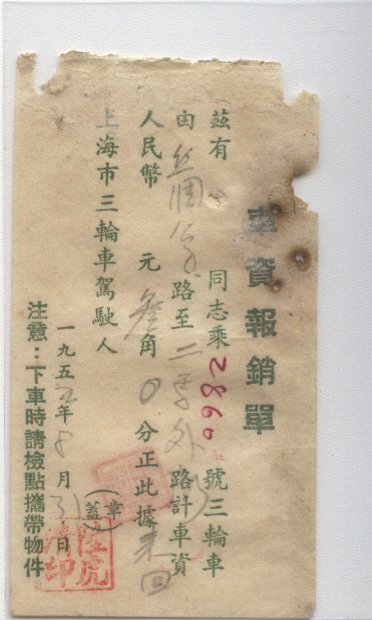 車資報銷單
茲有 同志乘 號三輪車
由 路至 路計車資
人民幣 元叁角0分正此據 来回
上海市三輪車駕駛人 (蓋章)
一九五五年8月31日
注意：下車時請檢點攜帶物件
陸虎清印